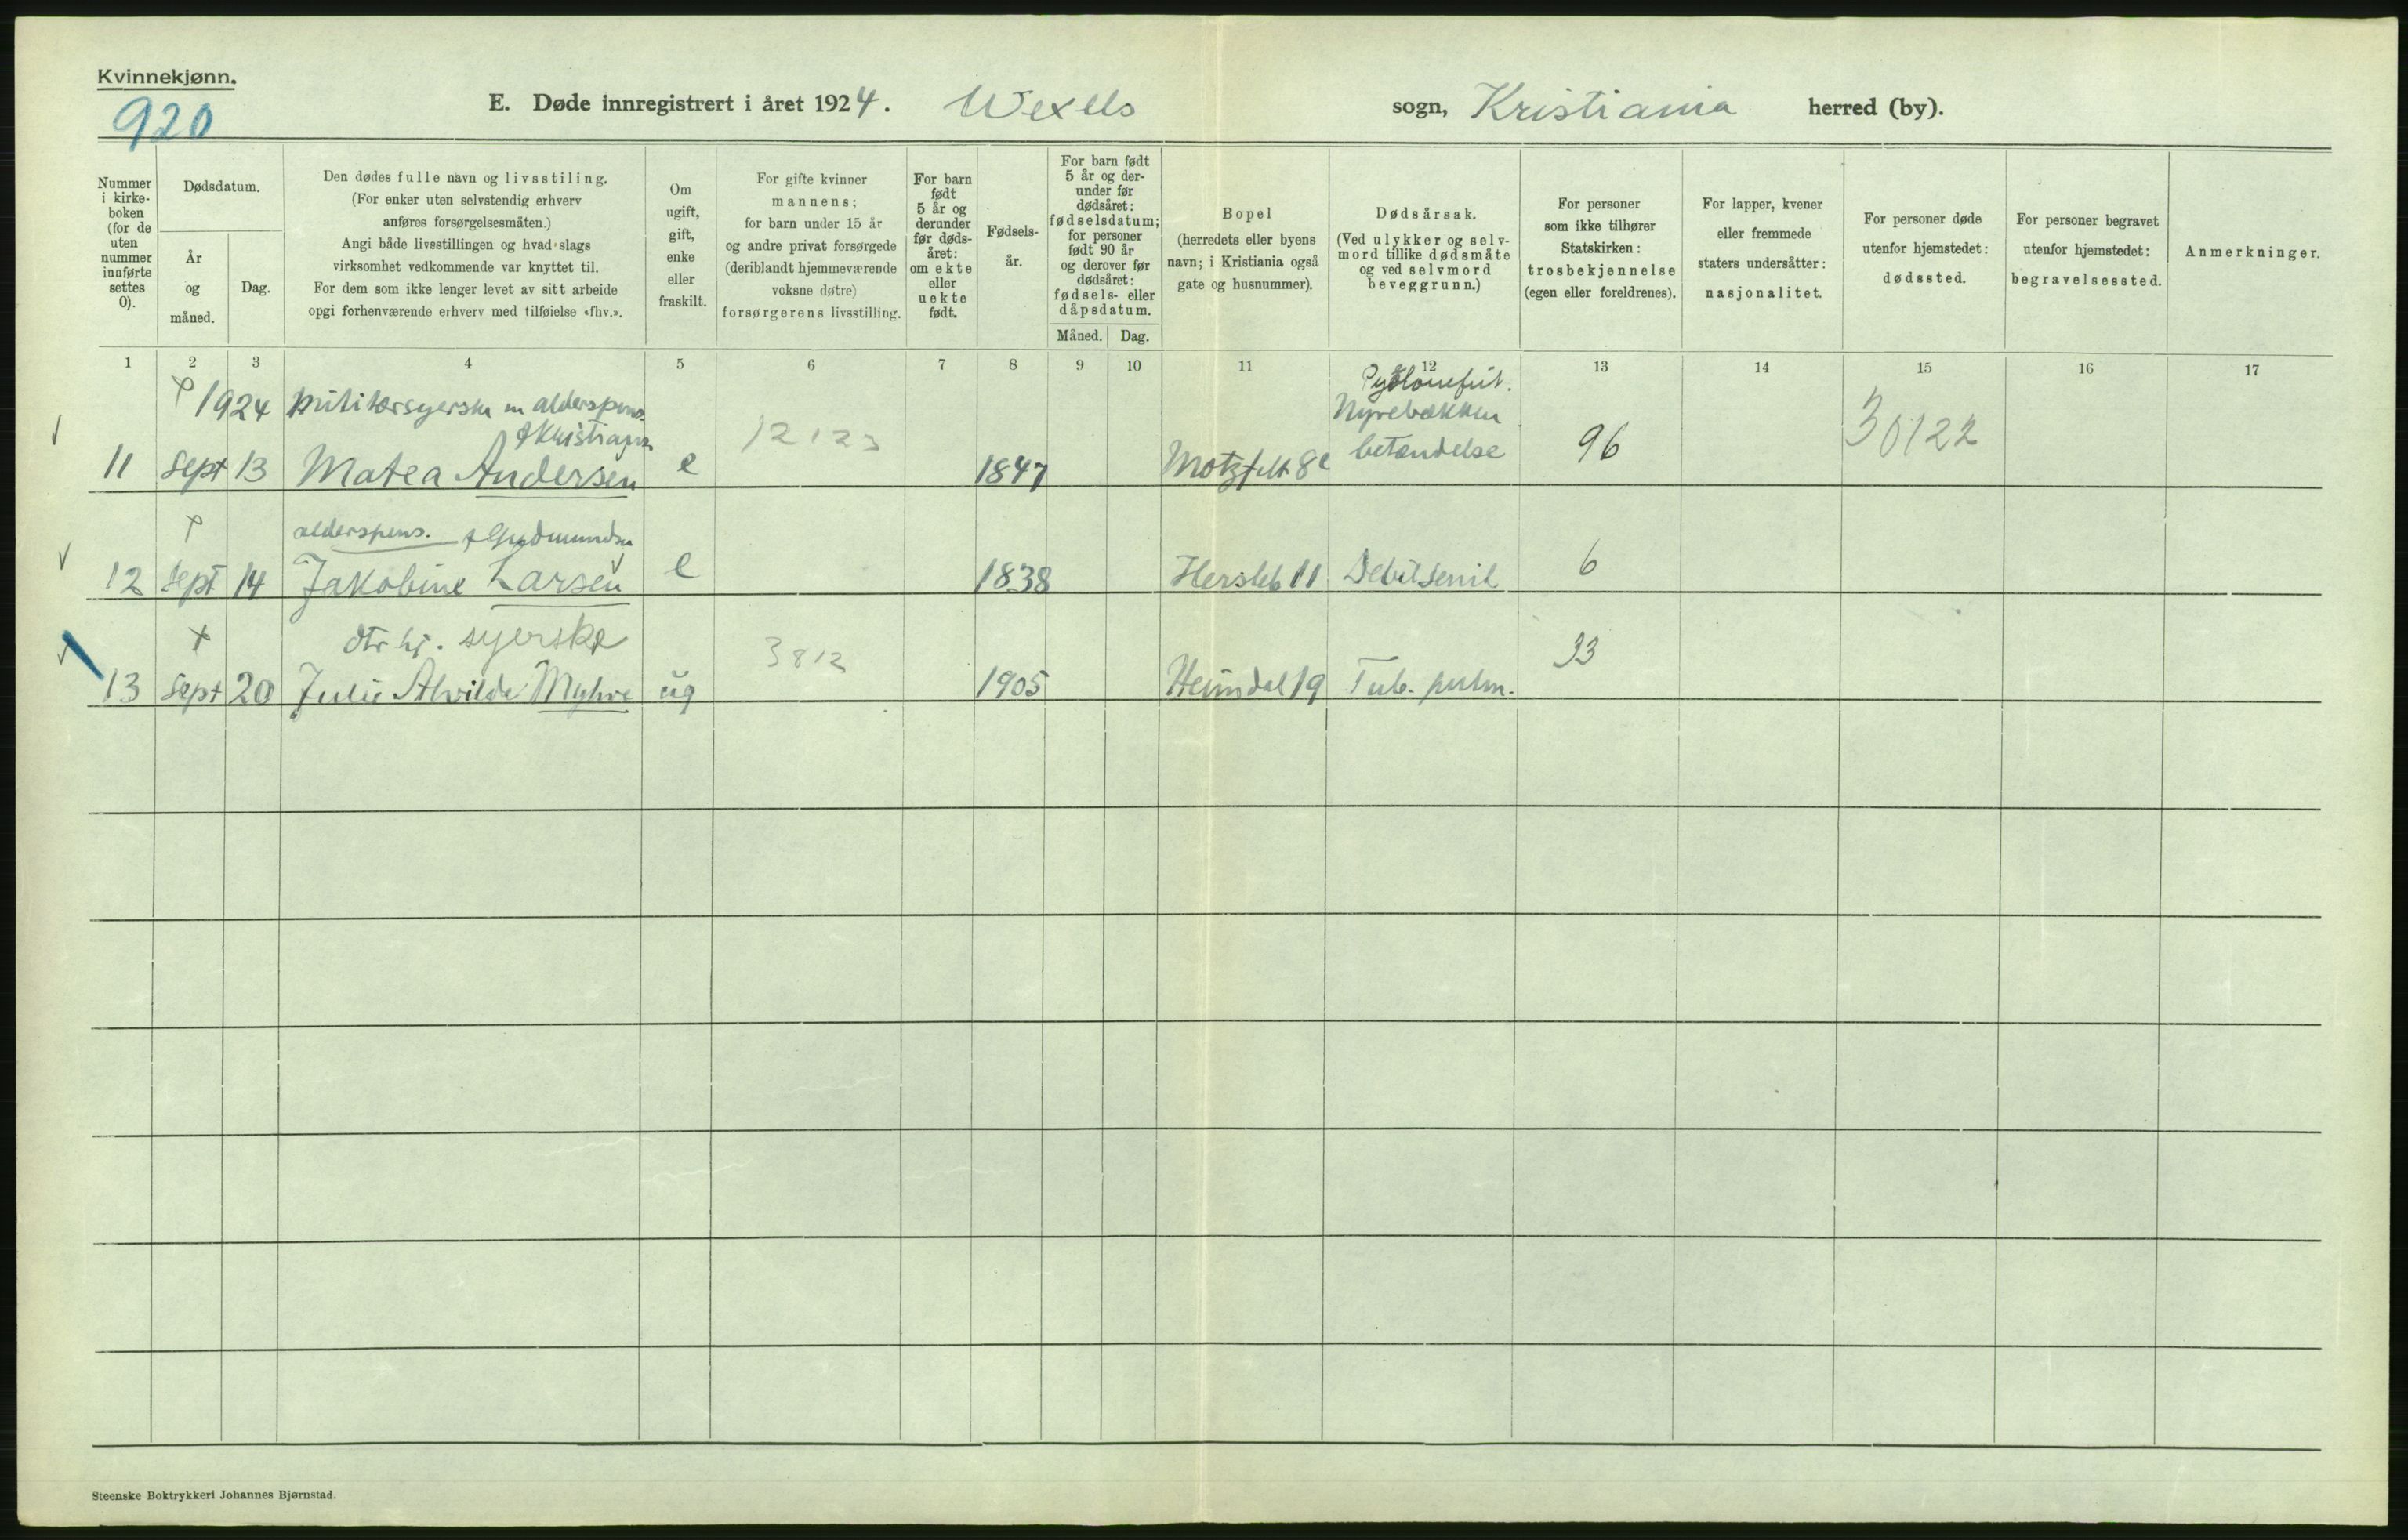 Kvinnekjønn.
920
E. Døde innregistrert i året 1924. Wexels sogn, Kristiania herred (by).
Nummer i kirke- boken (for de uten nummer innførte settes 0).
Dødsdatum.
År og måned.
Dag.
Den dødes fulle navn og livsstiling.
(For enker uten selvstendig erhverv
anføres forsørgelsesmåten.)
Angi både livsstillingen og hvad slags
virksomhet vedkommende var knyttet til.
For dem som ikke lenger levet av sitt arbeide
opgi forhenværende erhverv med tilføielse «fhv.».
Om ugift, gift, enke eller fraskilt.
For gifte kvinner
mannens;
for barn under 15 år
og andre privat forsørgede
(deriblandt hjemmeværende
voksne døtre)
forsørgerens livsstilling.
For barn født 5 år og derunder før døds- året: om ekte eller uekte født.
Fødsels- år.
For barn født 5 år og der- under før dødsåret: fødselsdatum; for personer født 90 år og derover før dødsåret: fødsels- eller dåpsdatum.
Måned. Dag.
Bopel
(herredets eller byens
navn; i Kristiania også
gate og husnummer).
Dødsårsak.
(Ved ulykker og selv-
mord tillike dødsmåte
og ved selvmord
beveggrunn.)
For personer
som ikke tilhører
Statskirken:
trosbekjennelse
(egen eller foreldrenes).
For lapper, kvener
eller fremmede
staters undersåtter:
nasjonalitet.
For personer døde
utenfor hjemstedet:
dødssted.
For personer begravet
utenfor hjemstedet:
begravelsessted.
Anmerkninger.
1 2 3 4 5 6 7 8 9 10 11 12 13 14 15 16 17
1924 militærsyerske m alderspens.
12123 Nyrebækken 96 30122
11 Sept 13 Matea Andersen e 1847 Motzfelt 8c betændelse
alderspens.
12 Sept 14 Jakobine Larsen e 1838 Hersleb 11 Debil senil 6
dtr hj. syerske 3812 33
13 Sept 20 Julie Alvilde Myhre ug 1905 Heimdal 19 Tub. pulm.
Steenske Boktrykkeri Johannes Bjørnstad.